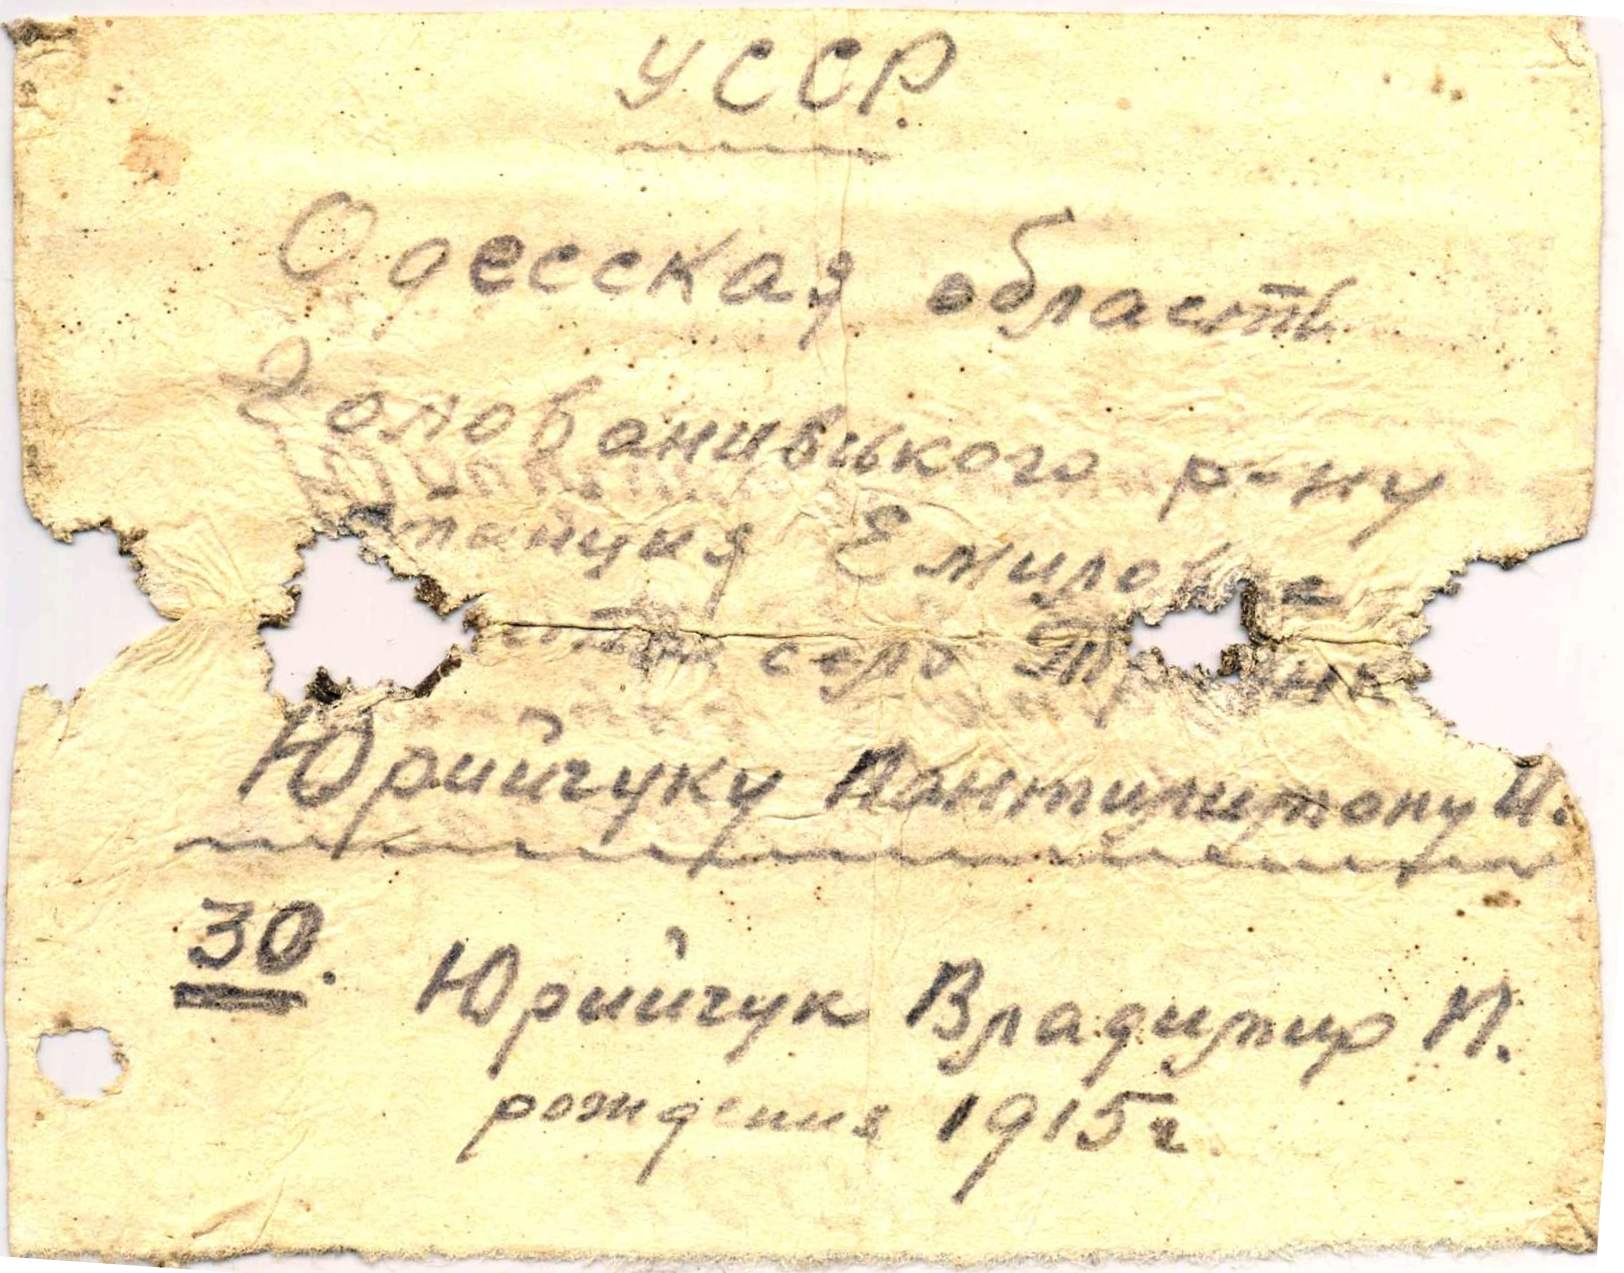 УССР.
Одесская область
Голованивського р-ну
Станция Емиловка
село
Юрийчуку Пантилимону И.
30.
Юрийчук Владимир И.
рождения 1915г